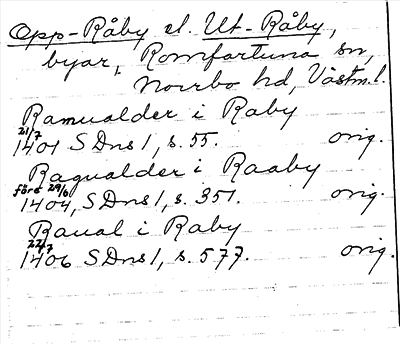 Opp-Råby el. Ut-Råby,
byar, Romfartuna sn,
Norrbo hd, Västm.l.
Ramualder i Raby
21/7 1401 SDns1, s. 55. orig.
Ragualder i Raaby
före 29/6 1404, SDns1, s. 351. orig.
Raual i Raby
22/7 1406 SDns1, s. 577. orig.